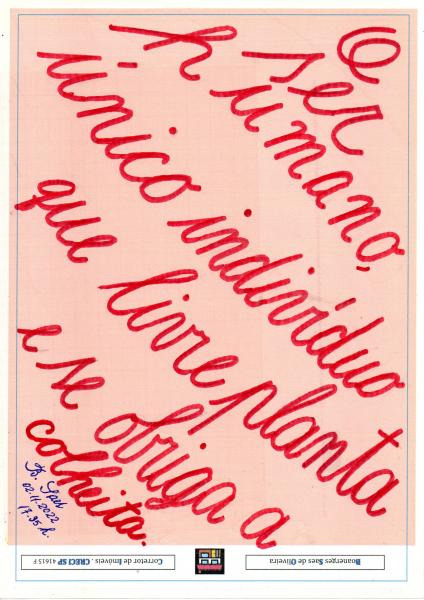 O ser
humano,
único indivíduo
que livre planta
e se obriga a
colheita.
B. Saes
02.11.2022
17.35 h.
Boanerges Saes de Oliveira
Corretor de Imóveis . CRECI SP 41615 F